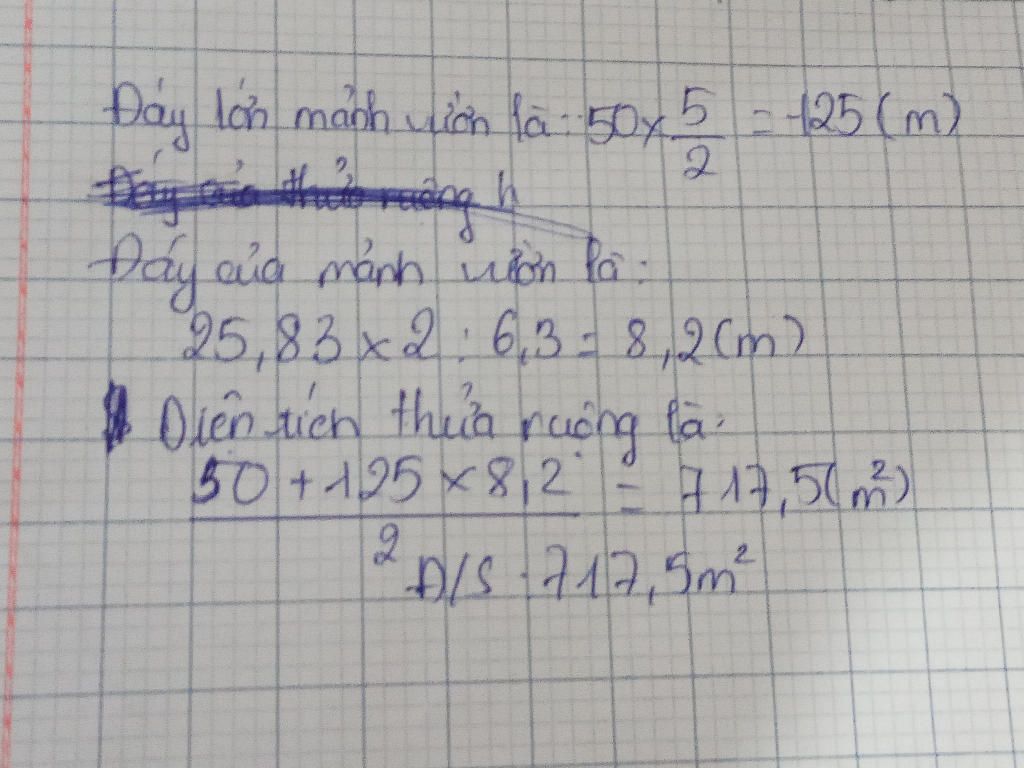 Đáy lớn mảnh vườn là: 50 x 5/2 = 125 (m)
Đáy của thửa ruộng h
Đáy của mảnh vườn là:
25,83 x 2 : 6,3 = 8,2 (m)
Diện tích thửa ruộng là:
50 + 125 x 8,2 / 2 = 717,5 (m²)
Đ/S: 717,5m²